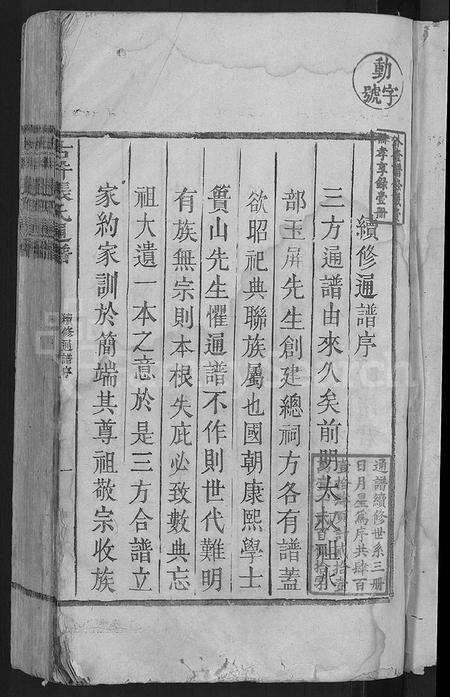 動字號
續修通譜序
三方通譜由來久矣前明太叔祖水
部玉屏先生創建總祠方各有譜蓋
欲昭祀典聯族屬也國朝康熙學士
簣山先生懼通譜不作則世代難明
有族無宗則本根失庇必致數典忘
祖大遺一本之意於是三方合譜立
家約家訓於簡端其尊祖敬宗收族
通譜續修世系三冊
日月星爲序共肆百
張氏通譜
續修通譜序
一